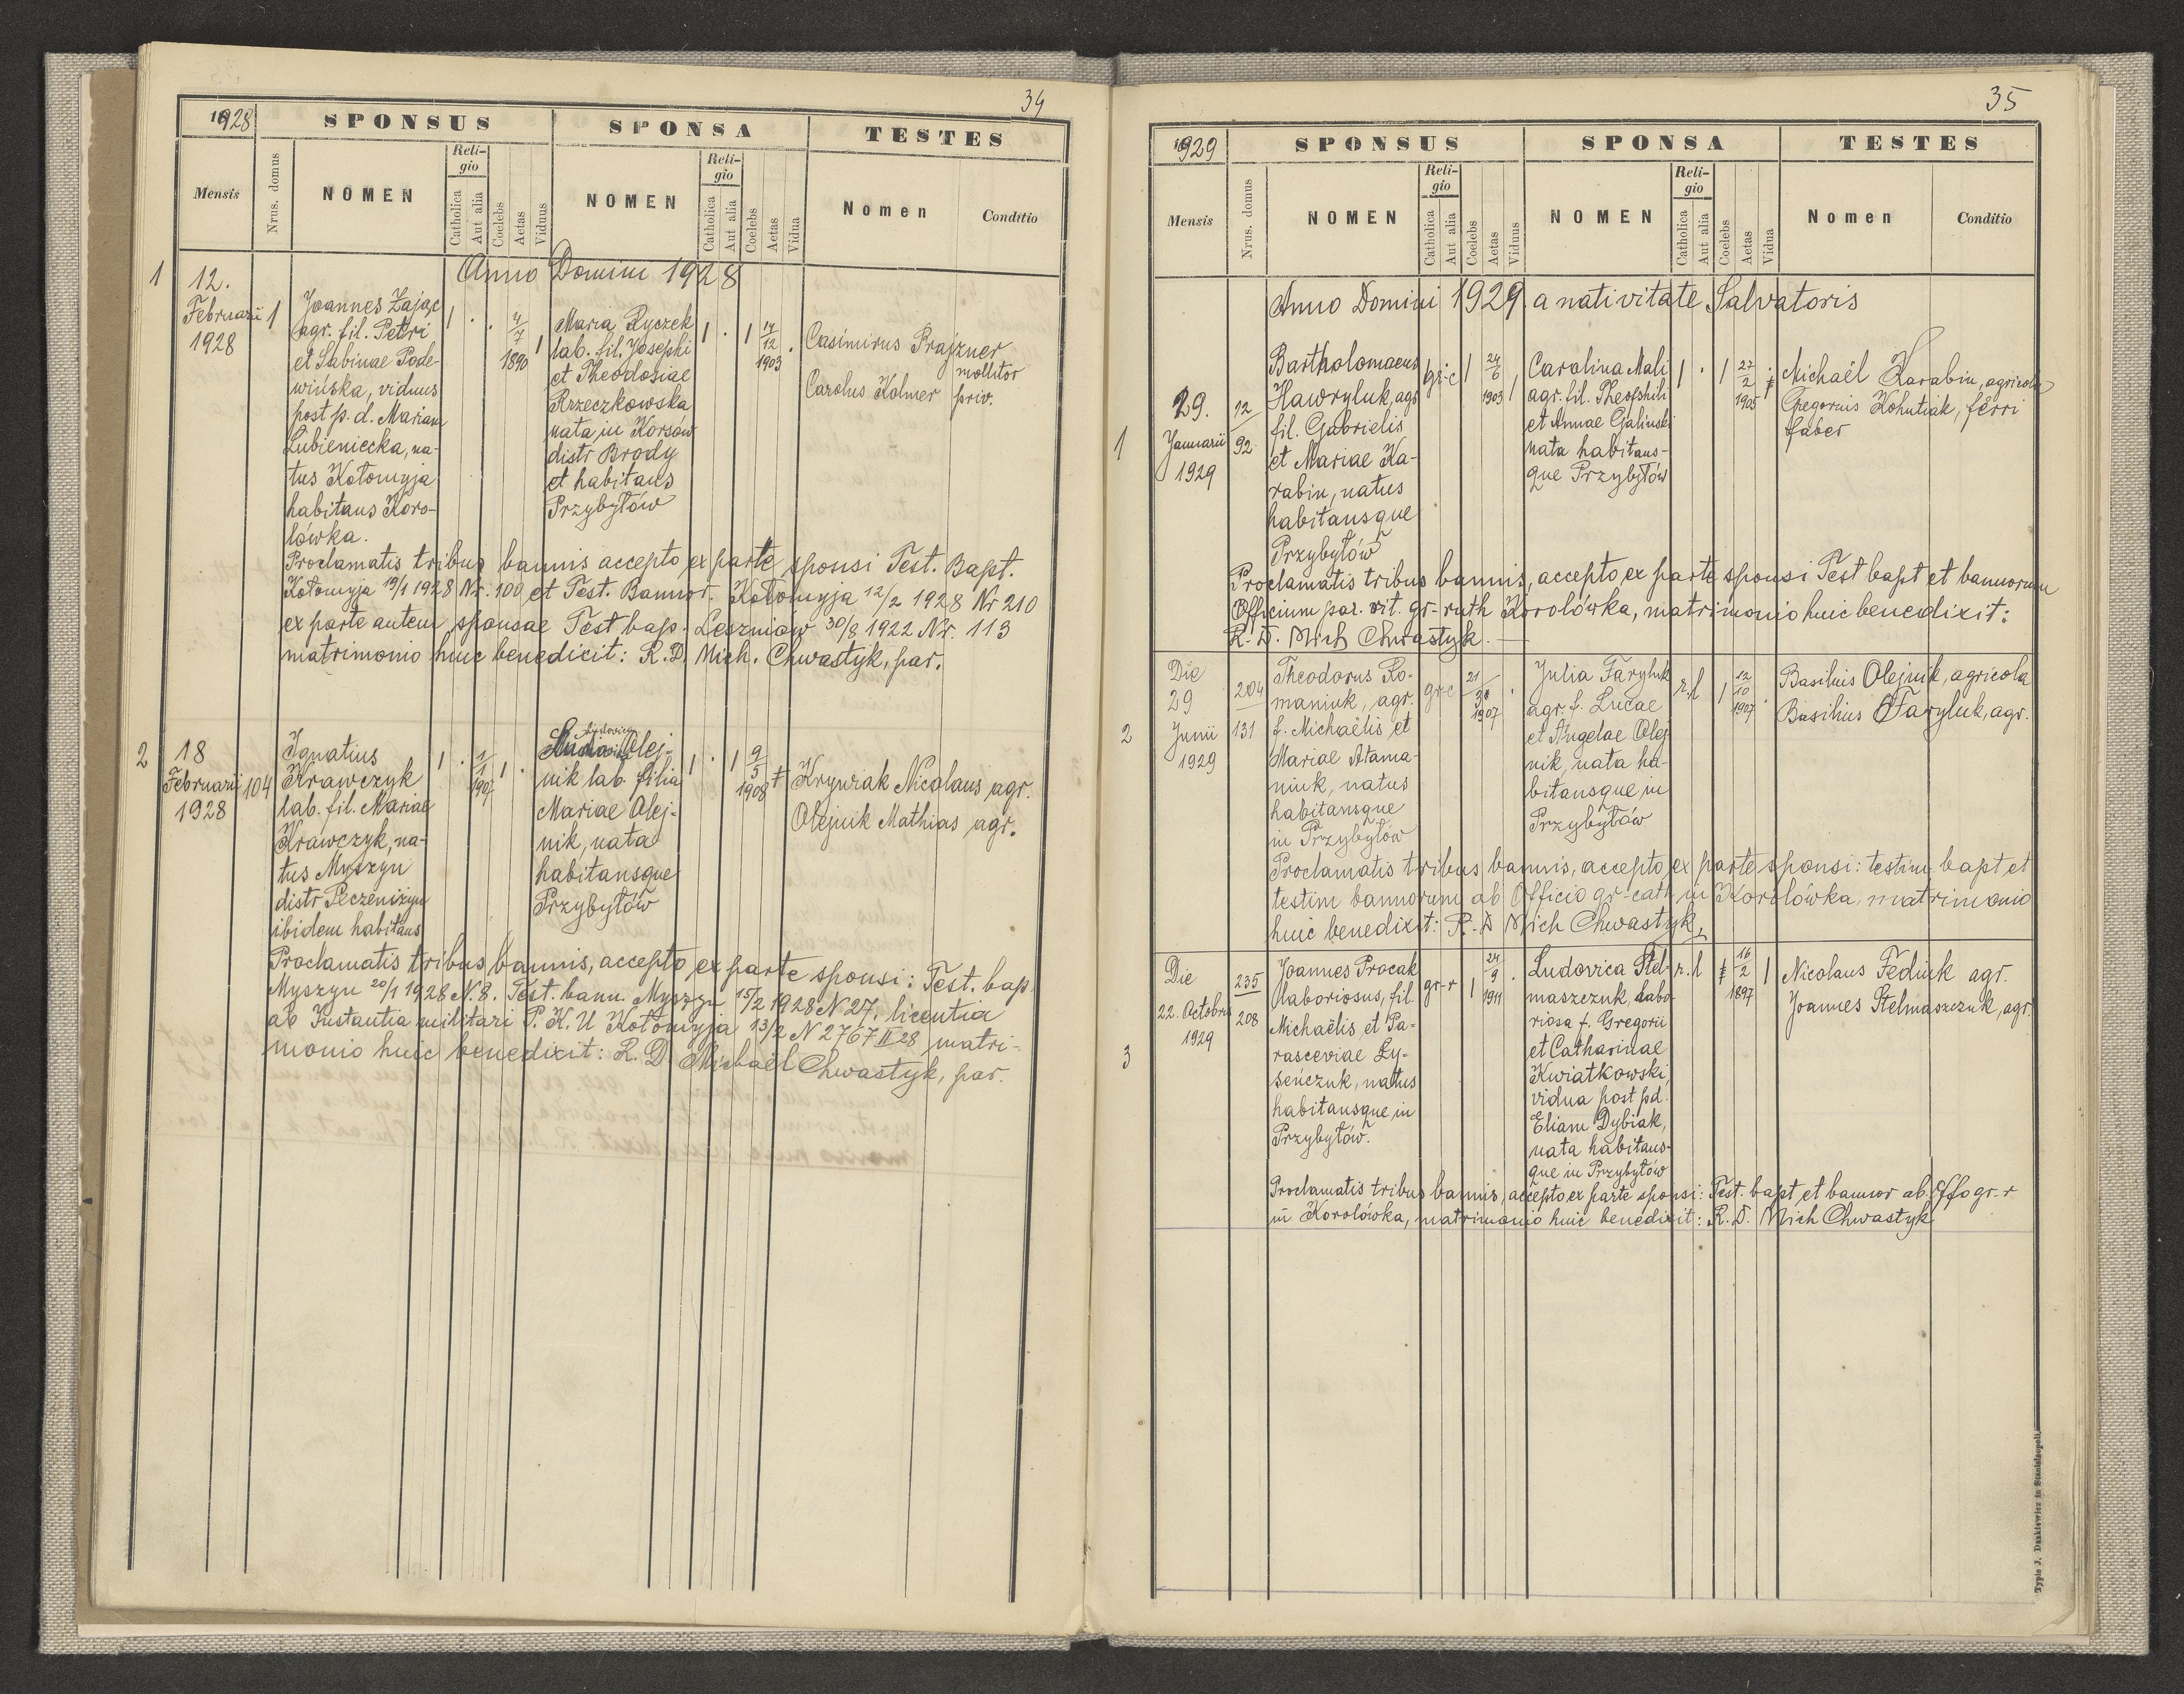 34
1928
SPONSUS
SPONSA
TESTES
Mensis
Nrus. domus
NOMEN
Religio
Catholica
Aut alia
Coelebs
Aetas
Viduus
NOMEN
Religio
Catholica
Aut alia
Coelebs
Aetas
Vidua
Nomen
Conditio
Anno Domini 1928
1
12.
Februarii
1928
1
Joannes Zając
agr. fil. Petri
et Sabinae Pode-
wińska, viduus
post p. d. Mariam
Lubieniecka, na-
tus Kołomyja
habitans Koro-
lówka.
1 . . 4/7 1890 1
Maria Ryczek
lab. fil. Josephi
et Theodosiae
Rzeczkowska
nata in Korsów
distr Brody
et habitans
Przybyłów
1 . 1 14/12 1903 .
Casimirus Prajzner
mollitor
Carolus Kolmer priv.
Proclamatis tribus bannis accepto ex parte sponsi Test. Bapt.
Kołomyja 19/1 1928 Nr. 100 et Test. Bannor. Kołomyja 12/2 1928 Nr 210
ex parte autem sponsae Test bap. Leszniow 30/8 1922 Nr. 113
matrimonio huic benedicit: R.D. Mich. Chwastyk, par.
2
18
Februarii
1928
104
Ignatius
Krawczyk
lab. fil. Mariae
Krawczyk, na-
tus Myszyn
distr Peczeniżyn
ibidem habitans
1 . 1/1 1907 1 .
Ludovica
Olej-
nik lab. filia
Mariae Olej-
nik, nata
habitansque
Przybyłów
1 . 1 9/5 1908
Krywiak Nicolaus agr.
Olejnik Mathias agr.
Proclamatis tribus bannis, accepto ex parte sponsi: Test. bap.
Myszyn 20/1 1928 N. 8. Test. bann. Myszyn 15/2 1928 N 27. licentia
ab Instantia militari P. K. U Kołomyja 13/2 N 2767 II 28 matri-
monio huic benedixit: R. D Michaël Chwastyk, par.
35
1929
SPONSUS
SPONSA
TESTES
Mensis
Nrus. domus
NOMEN
Religio
Catholica
Aut alia
Coelebs
Aetas
Viduus
NOMEN
Religio
Catholica
Aut alia
Coelebs
Aetas
Vidua
Nomen
Conditio
Anno Domini 1929 a nativitate Salvatoris
1
29.
Januarii
1929
12
92
Bartholomaeus
Hawryluk, agr
fil. Gabrielis
et Mariae Ka-
rabin, natus
habitansque
Przybyłów
gr-c 1 24/6 1903
Carolina Mali
agr. fil. Theophili
et Annae Galinski
nata habitans-
que Przybyłów
1 . 1 22/2 1905
Michaël Karabin, agricola
Gregorius Kohutiak, ferri
faber
Proclamatis tribus bannis, accepto ex parte sponsi Test bapt et bannorum
Officium par. rit. gr-ruth Korolówka, matrimonio huic benedixit:
R. D. Mich Chwastyk.
2
Die
29
Junii
1929
204
131
Theodorus Ro-
maniuk, agr.
f. Michaëlis et
Mariae Atama-
niuk, natus
habitansque
in Przybyłów
gr-c 1907 .
Julia Faryluk
agr. f. Lucae
et Angelae Olej
nik, nata ha-
bitansque in
Przybyłów
r. l 1 12/10 1907 .
Basilius Olejnik, agricola
Basilius Faryluk, agr.
Proclamatis tribus bannis, accepto ex parte sponsi: testim bapt et
testim bannorum ab Officio gr-cath in Korolówka, matrimonio
huic benedixit: R. D Mich Chwastyk,
3
Die
22. Octobris
1929
235
208
Joannes Procak
laboriosus, fil.
Michaëlis, et Pa-
rasceviae Ly-
seńczuk, natus
habitansque in
Przybyłów.
gr-r 1 24/9 1911 .
Ludovica Stel-
maszczuk, labo-
riosa f. Gregorii
et Catharinae
Kwiatkowski,
vidua post pd.
Eliam Dybiak,
nata habitans-
que in Przybyłów
r. l 16/2 1897 1
Nicolaus Fediuk agr.
Joannes Stelmaszczuk, agr.
Proclamatis tribus bannis, accepto ex parte sponsi: Test. bapt et bannor ab. Offo gr-r
in Korolówka, matrimonio huic benedixit: R. D. Mich Chwastyk
Typis J. Dankiewicz in Stanislaopoli.